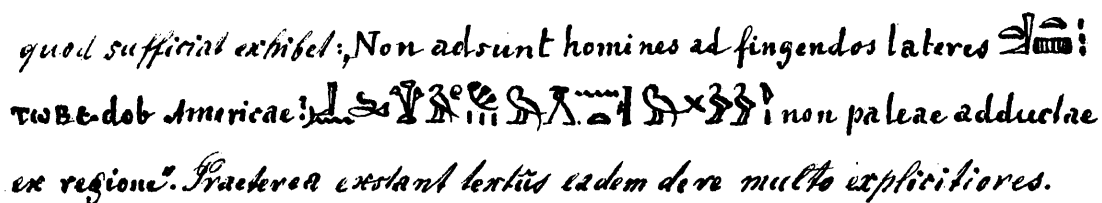 quod sufficiat exhibet: „Non adsunt homines ad fingendos lateres
ⲧⲱⲃⲉ-dob Americae!) non paleae adductae
ex regione". Praeterea exstant textus eadem de re multo explicitiores.